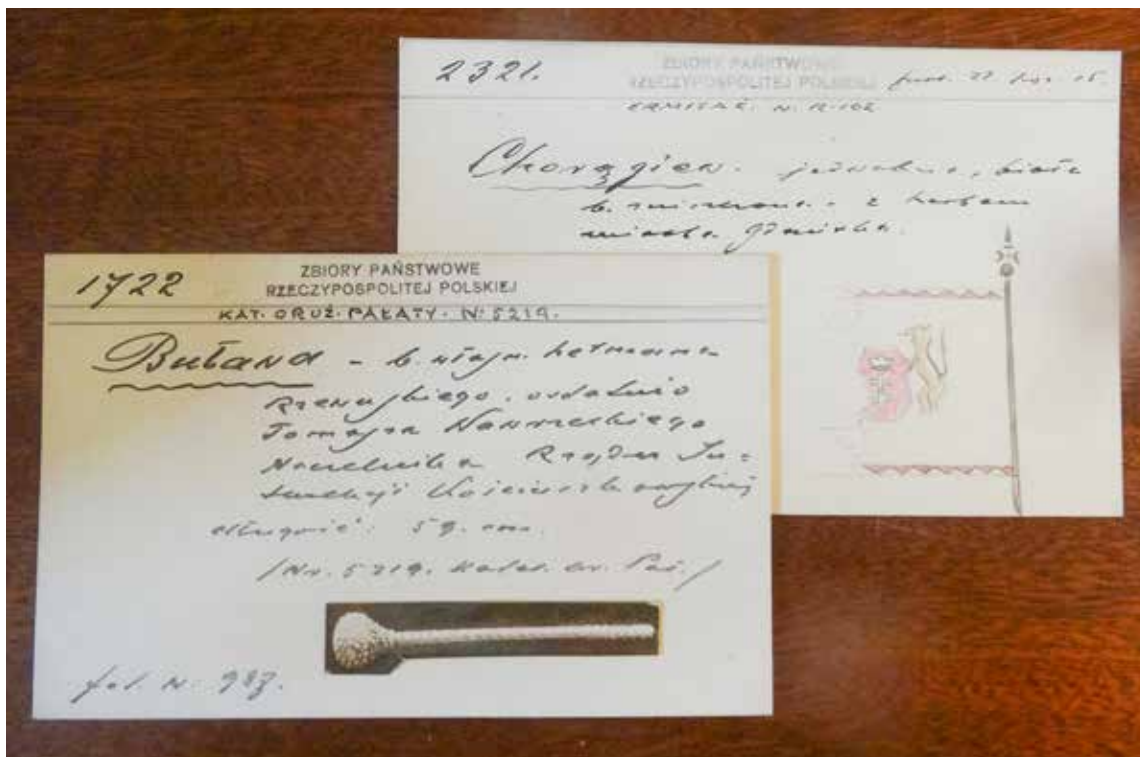 2321.
ZBIORY PAŃSTWOWE
RZECZYPOSPOLITEJ POLSKIEJ
ERMITAŻ. N. R-102
Chorągiew. jedwabna, biała
z herbem
miasta Gdańska.
1722
ZBIORY PAŃSTWOWE
RZECZYPOSPOLITEJ POLSKIEJ
KAT. ORUŻ. PAŁATY. Nr 5219.
Buława - b. własn. hetmana
Rzewuskiego. ostatnio
Tomasza Wawrzeckiego
Naczelnika Rządu In=
surekcji Kościuszkowskiej
długość: 59. cm.
/Nr. 5219. Katal. Or. Pał./
fot. N. 987.